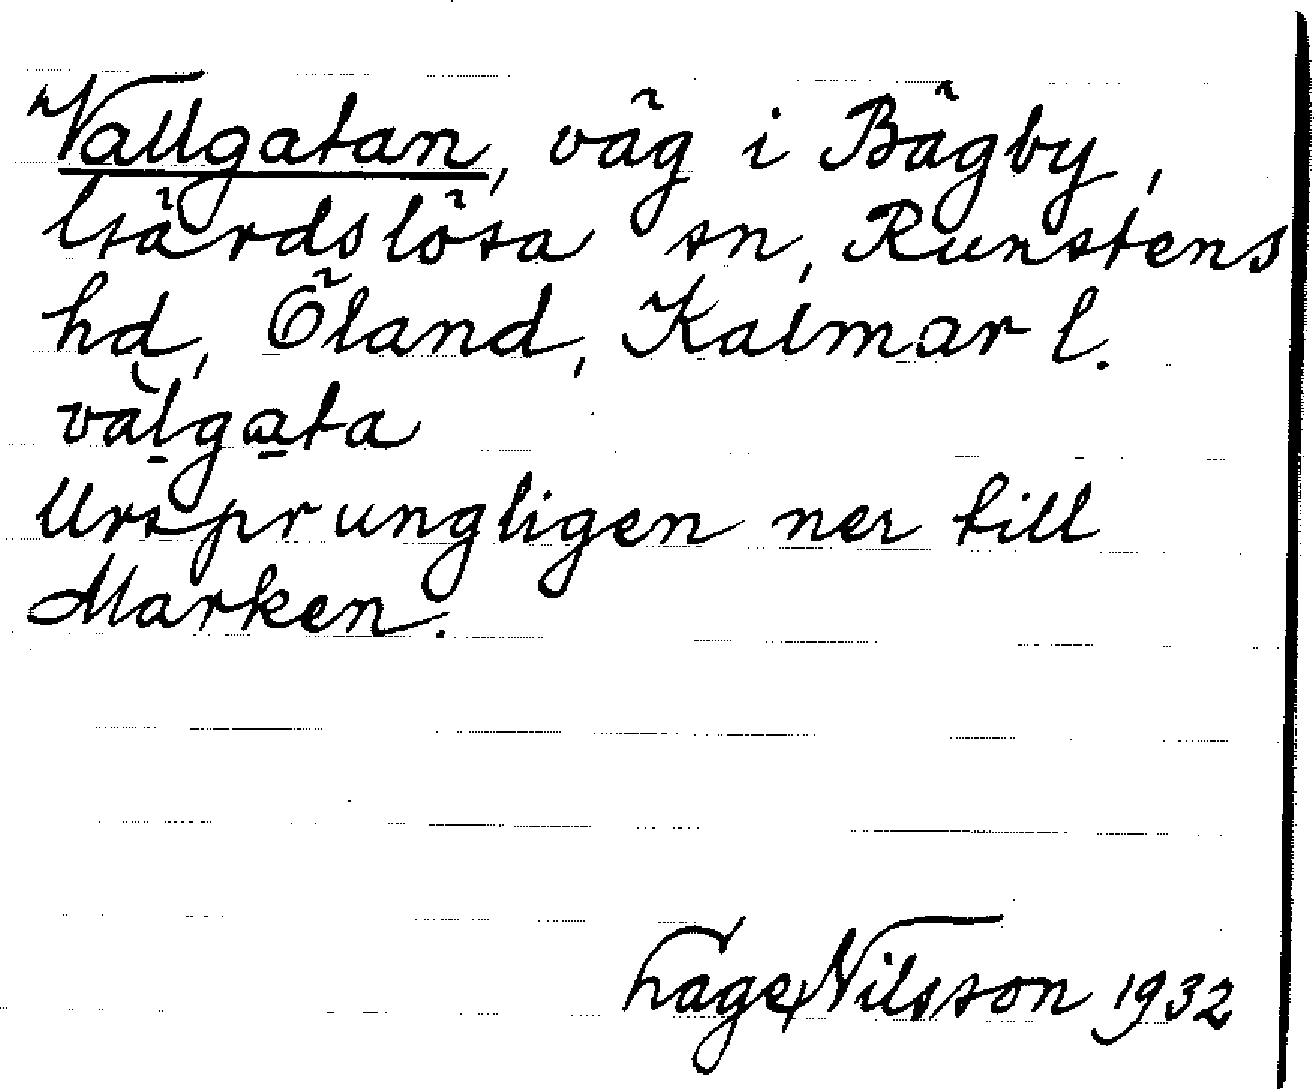 Vallgatan, väg i Bägby,
Gärdslösa sn, Runstens
hd, Öland, Kalmar l.
vàlgata
Ursprungligen ner till
Marken.
Hage Nilsson 1932